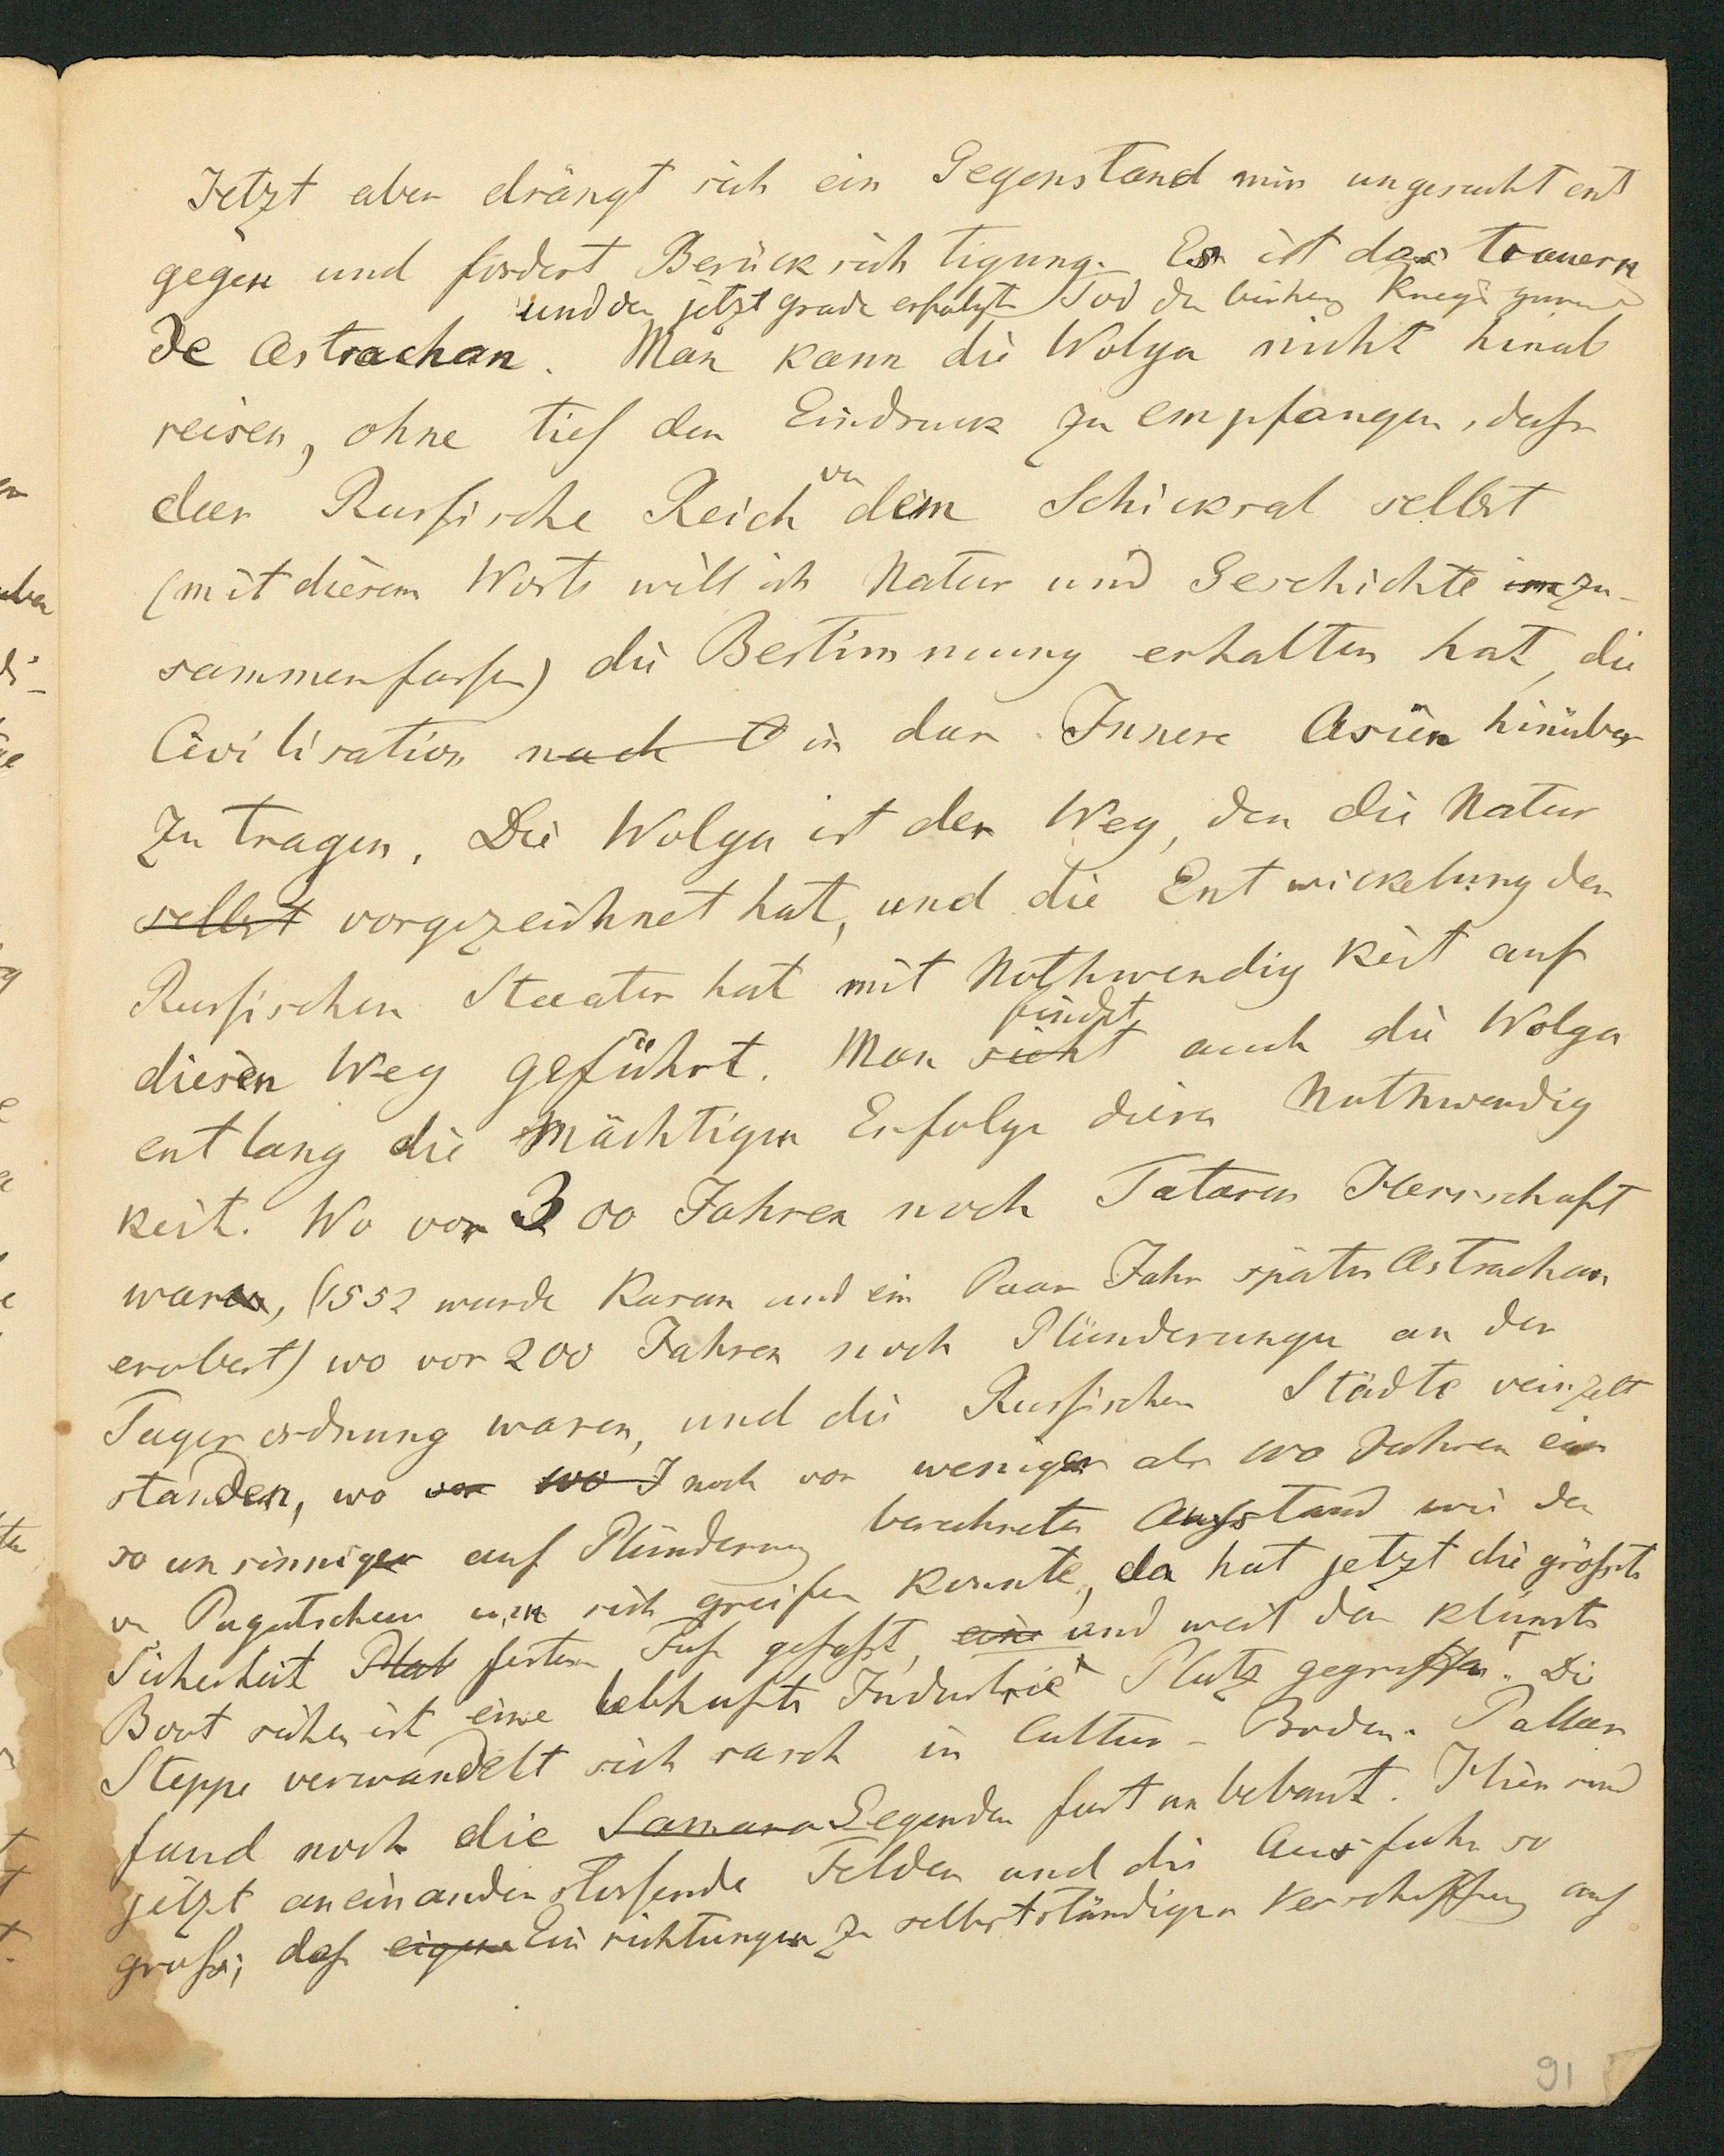 Jetzt aber drängt sich ein Gegenstand mir ungesucht ent
gegen und fordert Berücksichtigung. Es ist das trauern
und der jetzt grade erfolgte Tod des bisherigen Kriegs
de Astrachan. Man kann die Wolga nicht hinab
reisen, ohne tief den Eindruck zu empfangen, dass
das Russische Reich von dem Schicksal selbst
(mit diesem Worte will ich Natur und Geschichte im zu-
sammenfassen) die Bestimmung erhalten hat, die
Civilisation nach O in das Innere Asiens hinüber
zu tragen. Die Wolga ist der Weg, den die Natur
selbst vorgezeichnet hat, und die Entwickelung des
Russischen Staates hat mit Nothwendigkeit auf
findet
diesen Weg geführt. Man sieht auch die Wolga
entlang die mächtigen Erfolge dieser Nothwendig
keit. Wo vor 300 Jahren noch Tataren Herrschaft
waren, (1552 wurde Kasan und ein Paar Jahr später Astrachan
erobert) wo vor 200 Jahren noch Plünderungen an der
Tagesordnung waren, und die Russischen Städte vereinzelt
standen, wo vor 100 J noch vor weniger als 100 Jahren ein
so unsinniger auf Plünderung berechneter Aufstand wie der
v. Pugatschew um sich greifen konnte, da hat jetzt die grösste
Sicherheit Plat festen Fuss gefasst, eine und weil das kleinste
Boot sicher ist eine lebhafte Industrie Platz gegriffen. Die
Steppe verwandelt sich rasch in Cultur-Boden. Pallas
fand noch die Samara Gegenden fast unbebaut. Hier sind
jetzt aneinander stossende Felder und die Ausfuhr so
gross, dass eigene Einrichtungen zu selbstständigen Verschiffung auf
91